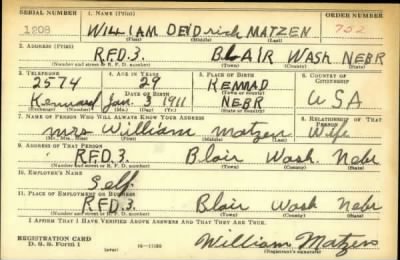 SERIAL NUMBER 1. NAME (Print) ORDER NUMBER
1208 WILLIAM DEIDrich MATZEN 752
(First) (Middle) (Last)
2. ADDRESS (Print)
R.F.D. 3. BLAIR WASH. NEBR
(Number and street or R. F. D. number) (Town) (County) (State)
3. TELEPHONE 4. AGE IN YEARS 5. PLACE OF BIRTH 6. COUNTRY OF CITIZENSHIP
2574 29 KENNAD
DATE OF BIRTH (Town or county)
Kennard Jan. 3 1911 NEBR USA
(Exchange) (Number) (Mo.) (Day) (Yr.) (State or country)
7. NAME OF PERSON WHO WILL ALWAYS KNOW YOUR ADDRESS 8. RELATIONSHIP OF THAT PERSON
Mrs William Matzen Wife
(Mr., Mrs., Miss) (First) (Middle) (Last)
9. ADDRESS OF THAT PERSON
R.F.D. 3. Blair Wash. Nebr
(Number and street or R. F. D. number) (Town) (County) (State)
10. EMPLOYER'S NAME
Self
11. PLACE OF EMPLOYMENT OR BUSINESS
R.F.D. 3. Blair Wash Nebr
(Number and street or R. F. D. number) (Town) (County) (State)
I AFFIRM THAT I HAVE VERIFIED ABOVE ANSWERS AND THAT THEY ARE TRUE.
REGISTRATION CARD
D. S. S. Form 1 William Matzen
(Registrant's signature)